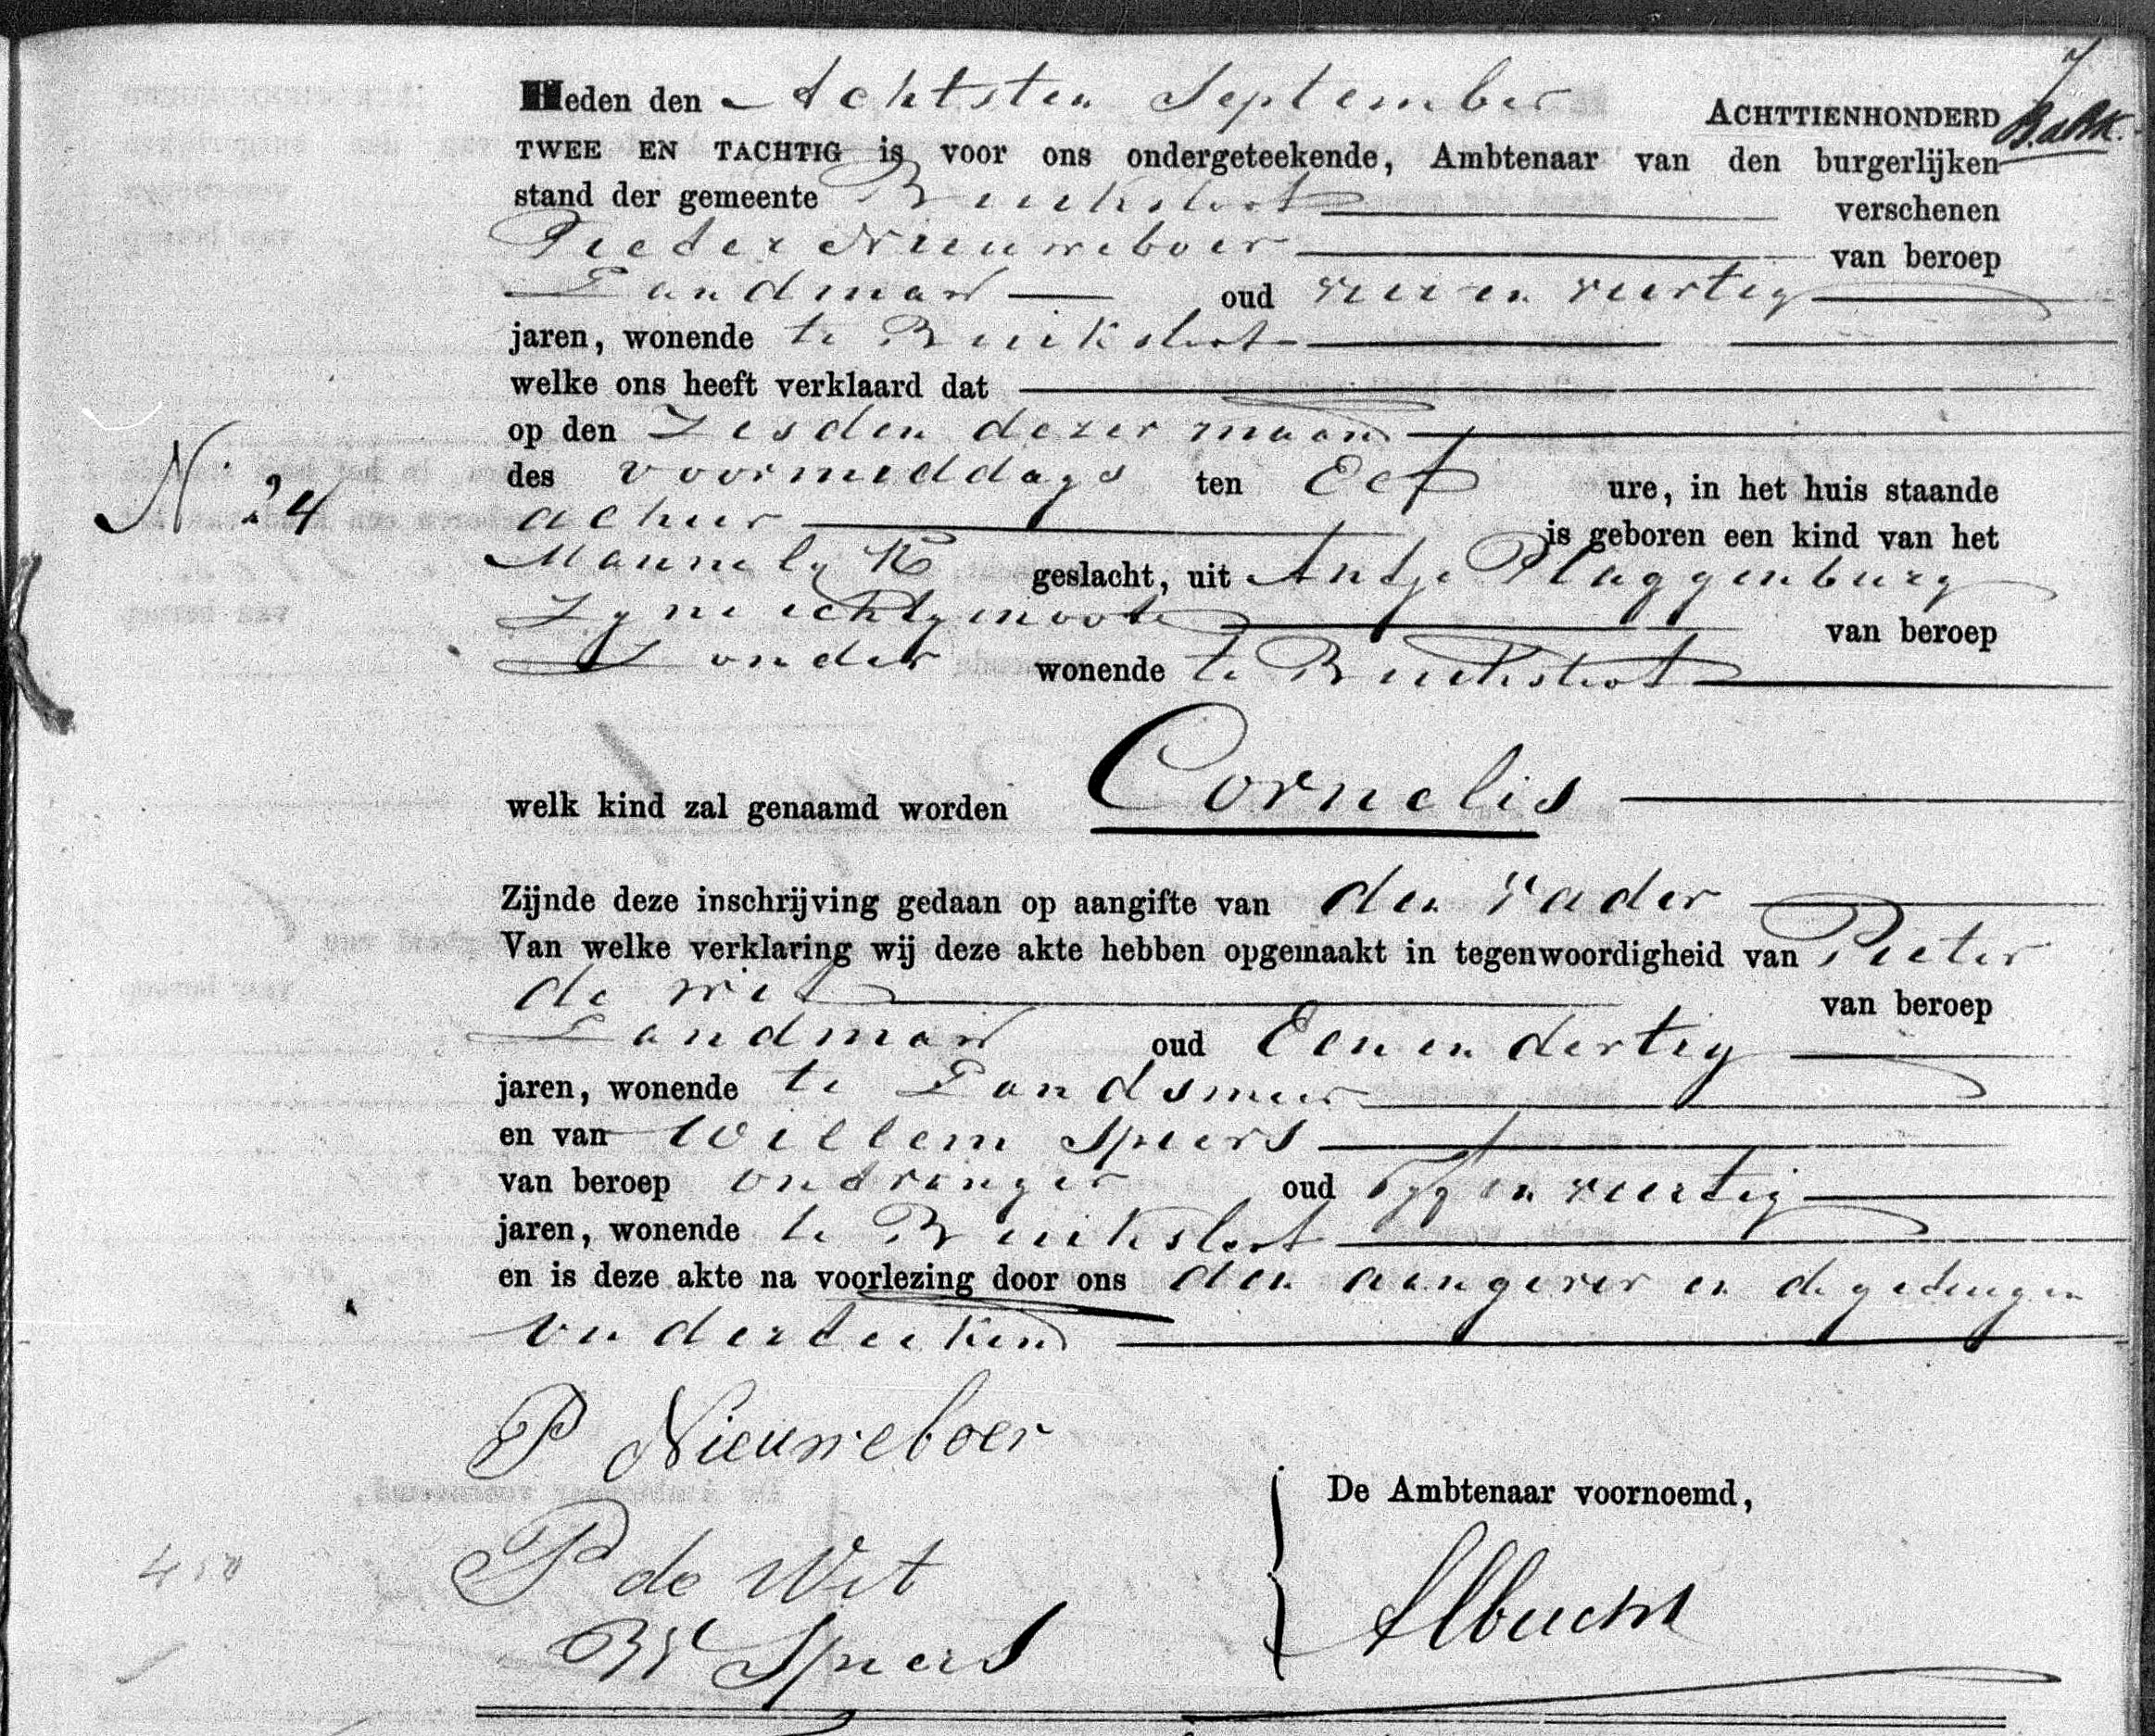 7
Heden den Achtsten September ACHTTIENHONDERD
TWEE EN TACHTIG is voor ons ondergeteekende, Ambtenaar van den burgerlijken
stand der gemeente Buiksloot verschenen
Pieter Nieuweboer van beroep
Landman oud vier en veertig
jaren, wonende te Buiksloot
welke ons heeft verklaard dat
op den Zesden dezer maand
des voormiddags ten Elf ure, in het huis staande
alhier is geboren een kind van het
Mannelijk geslacht, uit Antje Plaggenburg
Zijne echtgenoote van beroep
Zonder wonende te Buiksloot
No 24
welk kind zal genaamd worden Cornelis
Zijnde deze inschrijving gedaan op aangifte van den vader
Van welke verklaring wij deze akte hebben opgemaakt in tegenwoordigheid van Pieter
de Wit van beroep
Landman oud Een en dertig
jaren, wonende te Landsmeer
en van Willem Speets
van beroep oud Vijf en veertig
jaren, wonende te Buiksloot
en is deze akte na voorlezing door ons den aangever en de getuigen
onderteekend
P Nieuweboer
De Ambtenaar voornoemd,
P de Wit
W Speets